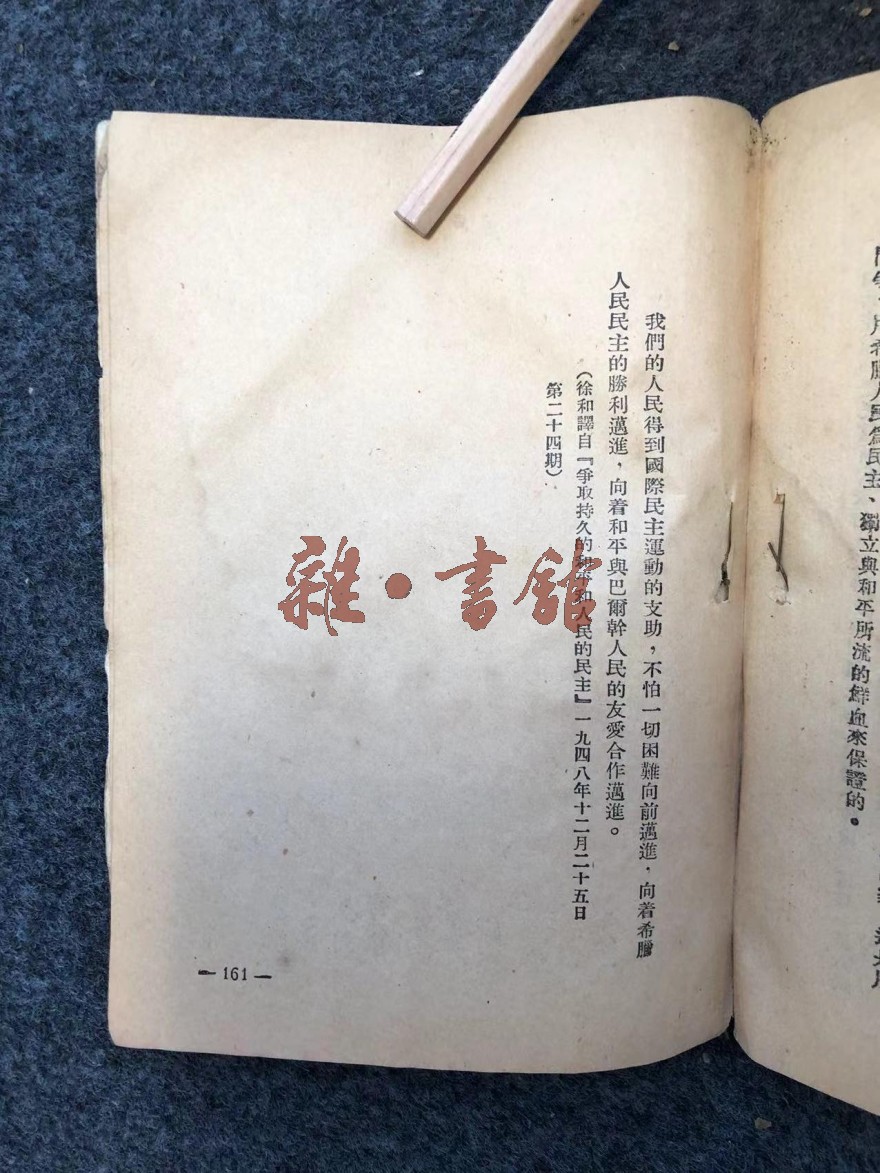 爭、用希臘人民爲民主、獨立與和平所流的鮮血來保證的。
我們的人民得到國際民主運動的支助，不怕一切困難向前邁進，向着希臘
人民民主的勝利邁進，向着和平與巴爾幹人民的友愛合作邁進。
（徐和譯自『爭取持久的和平和人民的民主』一九四八年十二月二十五日
第二十四期）
— 161 —
雜·書館